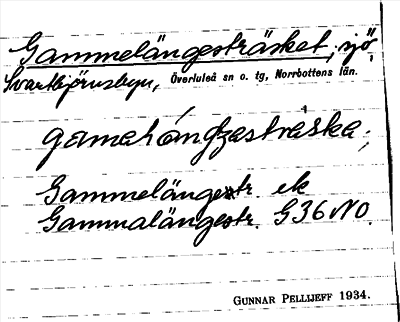 Gammelängesträsket, sjö,
Svartbjörnsbyn, Överluleå sn o. tg, Norrbottens län.
Gammelängestr. ek
Gammalängestr. G36 NO.
GUNNAR PELLIJEFF 1934.